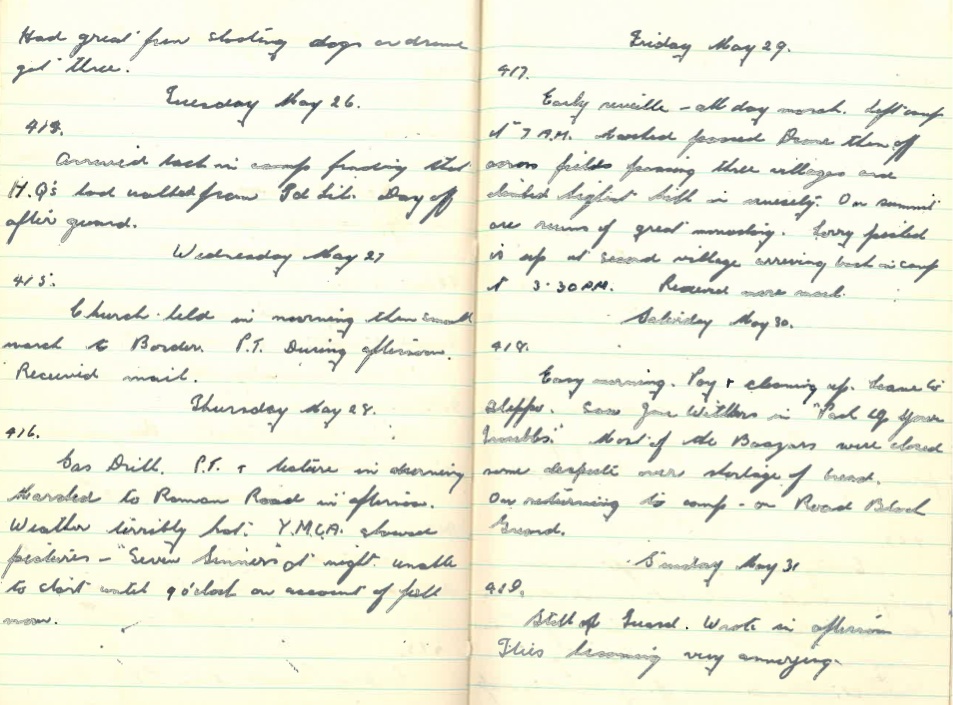 Had great fun shooting dogs on drome
got three.
Tuesday May 26.
414.
Arrived back in camp finding that
H.Q's had walked from Idlib. Day off
after guard.
Wednesday May 27
415.
Church held in morning then small
march to Border. P.T. During afternoon.
Received mail.
Thursday May 28.
416.
Gas Drill. P.T. + lecture in morning
Marched to Roman Road in afternoon.
Weather terribly hot. Y.M.C.A. showed
pictures - "Seven Sinners" at night unable
to start until 9 o'clock on account of full
moon.
Friday May 29.
417.
Early reveille - all day march. Left camp
at 7 A.M. Marched passed Drome then off
across fields passing three villages and
climbed highest hill in . On summit
are ruins of great monastry. Lorry picked
us up at second village arriving back in camp
at 3.30 P.M. Received more mail.
Saturday May 30.
418.
Easy morning. Pay + cleaning up. Leave to
Aleppo. Saw Jane Withers in "Pack Up Your
Troubles." Most of the Bazaars were closed
some dispute over shortage of bread.
On returning to camp - on Road Block
Guard.
Sunday May 31
419.
Still on Guard. Wrote in afternoon
Flies becoming very annoying.